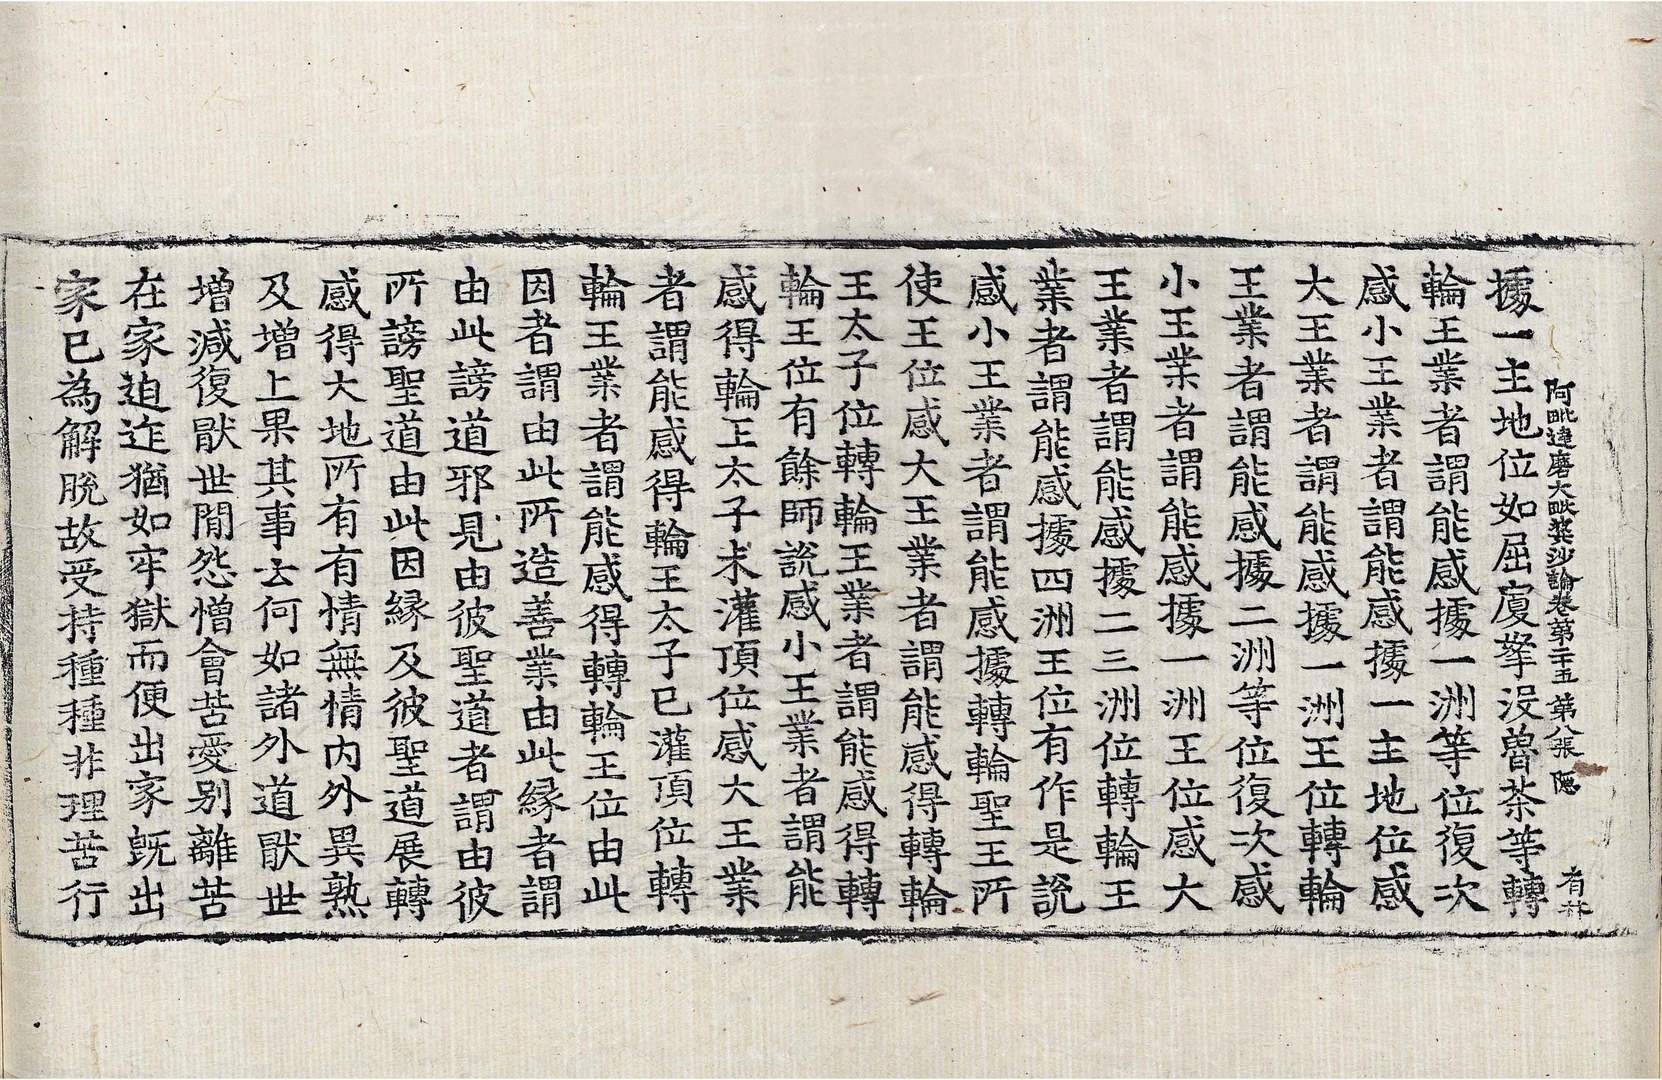 阿毗達磨大毗婆沙論卷第二十五 第八張 隱
有林
據一主地位如屈廈拏沒魯荼等轉
輪王業者謂能感據一洲等位復次
感小王業者謂能感據一主地位感
大王業者謂能感據一洲王位轉輪
王業者謂能感據二洲等位復次感
小王業者謂能感據一洲王位感大
王業者謂能感據二三洲位轉輪王
業者謂能感據四洲王位有作是說
感小王業者謂能感據轉輪聖王所
使王位感大王業者謂能感得轉輪
王太子位轉輪王業者謂能感得轉
輪王位有餘師說感小王業者謂能
感得輪王太子未灌頂位感大王業
者謂能感得輪王太子已灌頂位轉
輪王業者謂能感得轉輪王位由此
因者謂由此所造善業由此緣者謂
由此謗道邪見由彼聖道者謂由彼
所謗聖道由此因緣及彼聖道展轉
感得大地所有有情無情內外異熟
及增上果其事云何如諸外道厭世
增減復厭世間怨憎會苦愛別離苦
在家迫迮猶如牢獄而便出家既出
家已為解脫故受持種種非理苦行